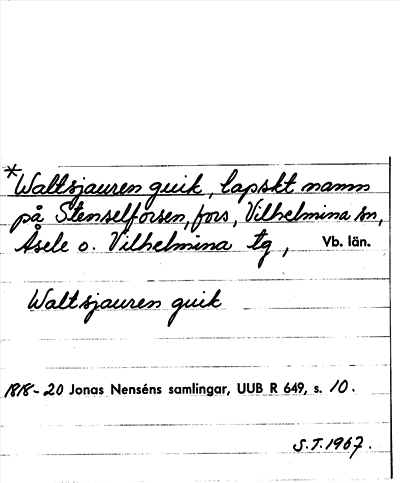 *Waltsjauren guik, lapskt namn
på Stenselforsen, fors, Vilhelmina sn,
Åsele o. Vilhelmina tg, Vb. län.
Waltsjauren guik
1818-20 Jonas Nenséns samlingar, UUB R 649, s. 10.
S.T. 1967.